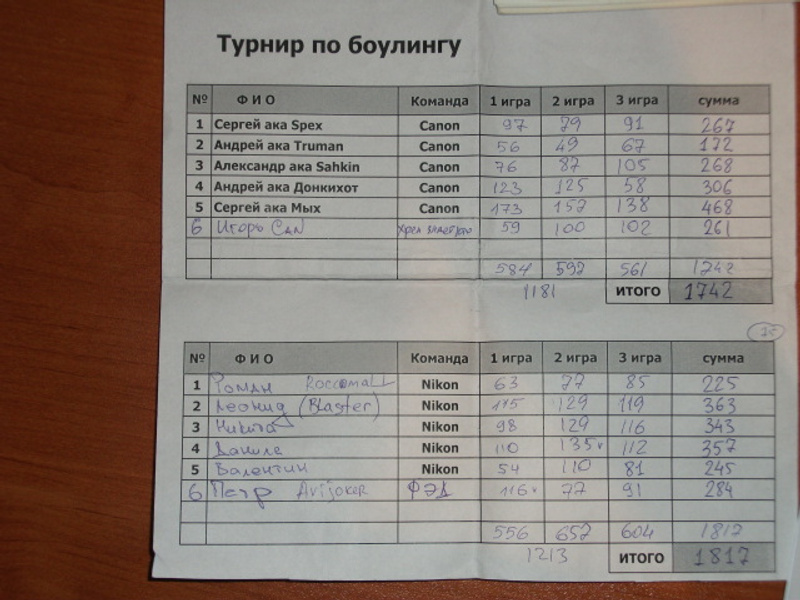 Турнир по боулингу
№ Ф И О Команда 1 игра 2 игра 3 игра сумма
1 Сергей ака Spex Canon 97 79 91 267
2 Андрей ака Truman Canon 56 49 67 172
3 Александр ака Sahkin Canon 76 87 105 268
4 Андрей ака Донкихот Canon 123 125 58 306
5 Сергей ака Мых Canon 173 157 138 468
6 Игорь CAN хрен 59 100 102 261
584 597 561 1742
1181 ИТОГО 1742
№ Ф И О Команда 1 игра 2 игра 3 игра сумма
1 Роман Nikon 63 77 85 225
2 Леонид (Blaster) Nikon 115 129 119 363
3 Никита Nikon 98 129 116 343
4 Nikon 110 135 112 357
5 Валентин Nikon 54 110 81 245
6 Петр Avijoker ФЭД 116 77 91 284
556 657 604 1817
1213 ИТОГО 1817